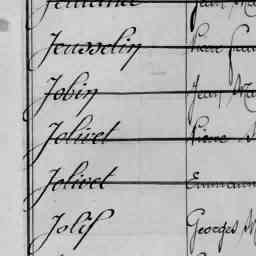 Jeusselin Pierre
Jobin Jean Ma
Jolivet Pierre
Jolivet Emmanu
Jolif Georges M